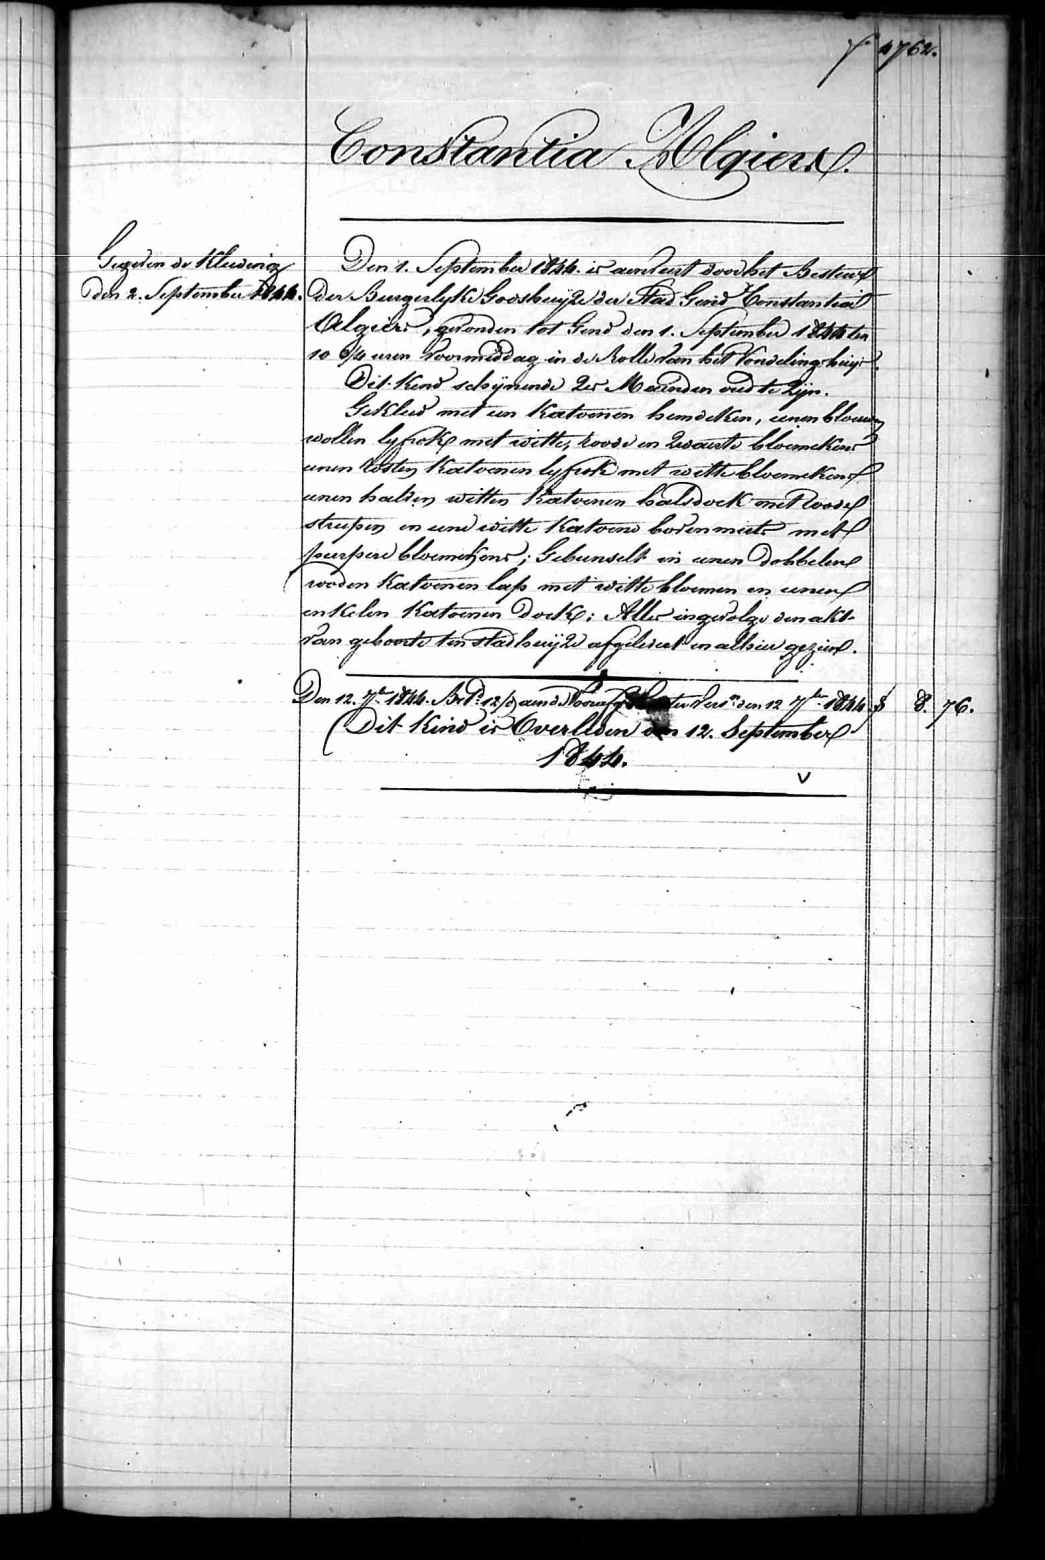 4762.
Constantia Algiers.
Gegeven de Kleeding
den 2. September 1844.
Den 1. September 1844. is aenveert door het Bestuur
der Burgerlyke Godshuyze der Stad Gend Constantia
Algiers, gevonden tot Gend den 1. September 1844 ten
10 3/4 uren voormiddag in de Rolle van het Vondelinghuys.
Dit kind schynende zes Maenden oud te zyn.
Gekleed met een Katoenen hemdeken, eenen blouwen
wollen lyfrok met witte, roode en zwarte bloemekens
eenen rosten Katoenen lyfrok met witte bloemekens
eenen halven witten Katoenen halsdoek met roode
streepen en eene witte Katoene bovenmuts met
purpere bloemekens; Gebunselt in eenen dobbelen
rooden Katoenen lap met witte bloemen en eenen
enkelen Katoenen Doek; Alles ingevolge den akt
van geboorte ten stadhuyze afgelevert en alhier gezien.
Den 12. 7er 1844. Betd. 12/d aen de den 12 7ber 1844. 8. 76.
Dit Kind is Overleden den 12. September
1844.